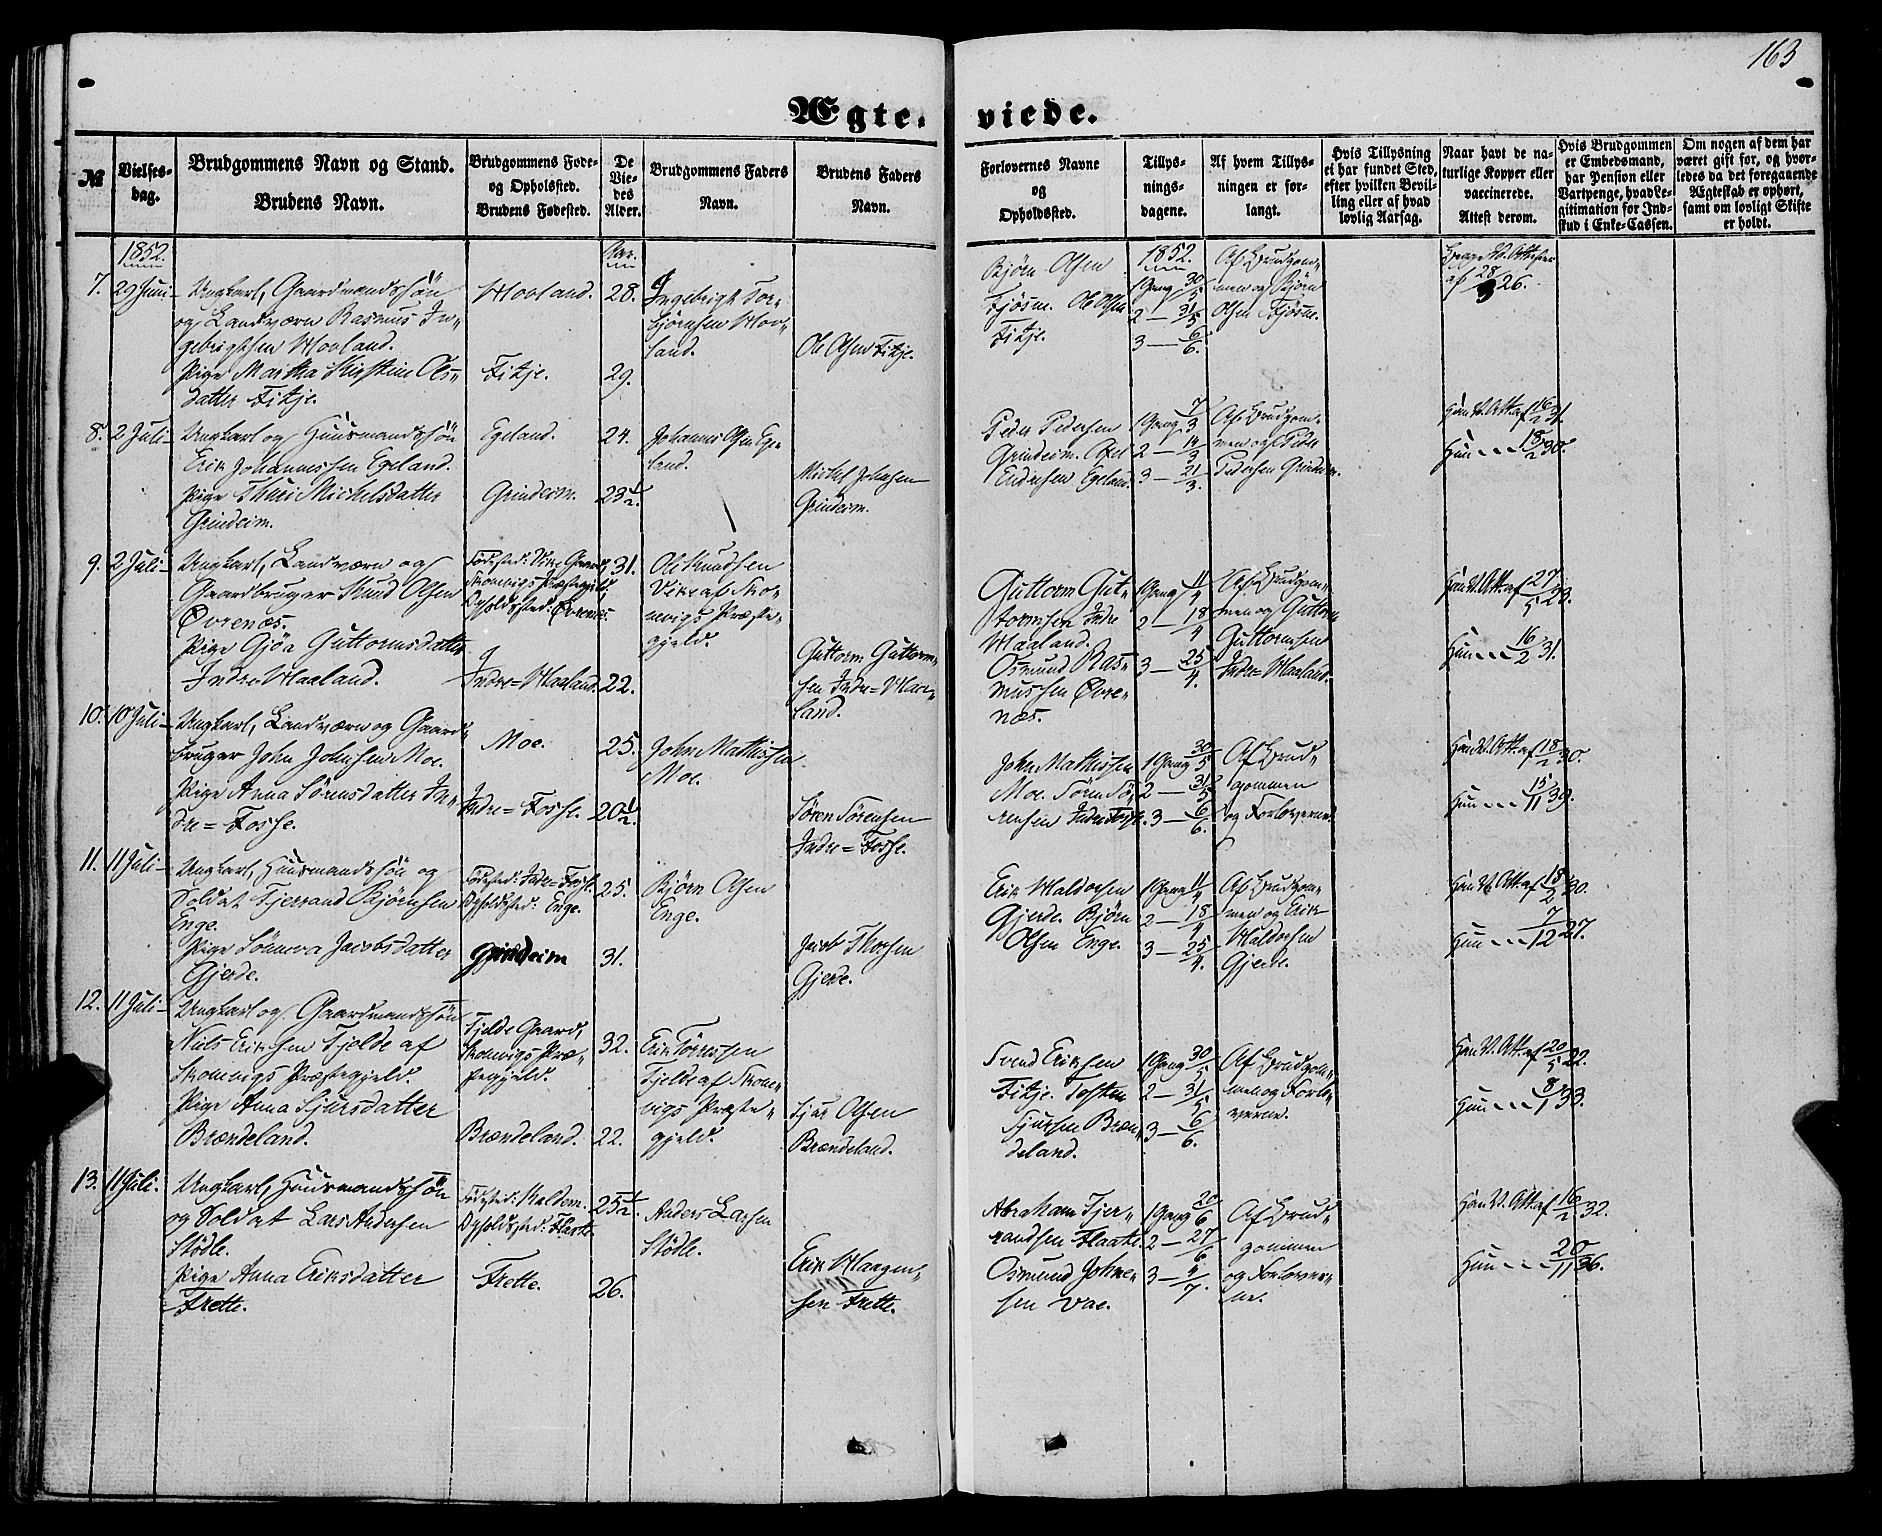 163
Ægte. viede.
№
Vielses-
dag.
Brudgommens Navn og Stand.
Brudens Navn.
Brudgommens Føde-
og Opholdssted.
Brudens Fødested.
De
Vie-
des
Alder.
Brudgommens Faders
Navn.
Brudens Faders
Navn.
Forlovernes Navne
og
Opholdssted.
Tillys-
nings-
dagene.
Af hvem Tillys-
ningen er for-
langt.
Hvis Tillysning
ei har fundet Sted,
efter hvilken Bevil-
ling eller af hvad
lovlig Aarsag.
Naar havt de na-
turlige Kopper eller
vaccinerede.
Attest derom.
Hvis Brudgommen
er Embedsmand,
har Pension eller
Vartpenge, hvad Le-
gitimation for Ind-
skud i Enke-Cassen.
Om nogen af dem har
været gift før, og hvor-
ledes da det foregaaende
Ægteskab er ophørt,
samt om lovligt Skifte
er holdt.
1852.
Aar.
7. 29 Juni
Ungkarl, Gaardmandssøn
og Landværn Rasmus In-
gebrigtsen Hovland.
Pige Martha Kirstine Ols-
datter Fitje.
Hovland. 28.
Fitje. 29.
Ingebrigt Tor-
bjørnsen Hov-
land.
Ole Olsen Fitje.
Bjørn Olsen
Fjøsne. Ole Olsen
Fitje.
1852.
1 Gang 30/5
2 — 31/5
3 — 6/6.
Af Brudgom-
men og Bjørn
Olsen Fjøsne.
Begge V. Attester
af 28/3 26.
8. 2 Juli
Ungkarl og Huusmandssøn
Erik Johannessen Egeland.
Pige Thuri Michelsdatter
Grindeim.
Egeland. 24.
Grindeim. 23½.
Johannes Olsen Ege-
land.
Michel Johnsen
Grindeim.
Peder Pedersen
Grindeim.
Endresen Egeland.
1 Gang 7/3
2 — 14/3
3 — 21/3.
Af Brudgom-
men og Peder
Pedersen Grindeim.
Han V. Att. af 16/2 31.
Hun 18/2 30.
9. 2 Juli
Ungkarl, Landværn og
Gaardbruger Knud Olsen
Øvrenæs.
Pige Gjøa Guttormsdatter
Indre Haaland.
Fødested: Vike Gaard,
Skonevigs Præstegjeld,
Opholdssted: Øvrenæs.
31.
Indre=Haaland. 22.
Ole Knudsen
Vike af Sko-
nevigs Præste-
gjeld.
Guttorm Guttorm-
sen Indre=Haa-
land.
Guttorm Gut-
tormsen Indre
Haaland.
Osmund Ras-
mussen Øvre-
næs.
1 Gang 11/4
2 — 18/4
3 — 25/4.
Af Brudgom-
men og Guttorm
Guttormsen
Indre=Haaland.
Han V. Att. af 27/5 23.
Hun 16/2 31.
10. 10 Juli
Ungkarl, Landværn og Gaard-
bruger John Johnsen Moe.
Pige Anna Sørensdatter In-
dre=Fosse.
Moe. 25.
Indre=Fosse. 20½.
John Mathissen
Moe.
Søren Sørensen
Indre=Fosse.
John Mathissen
Moe. Søren Sø-
rensen Indre Fosse.
1 Gang 30/5
2 — 31/5
3 — 6/6.
Af Brud-
gommen
og Forloverne
Han V. Att. af 18/2 30.
Hun 15/11 39.
11. 11 Juli
Ungkarl, Huusmandssøn og
Soldat Tjerrand Bjørnsen
Enge.
Pige Sønneva Jacobsdatter
Gjerde.
Fødested: Indre=Fosse.
Opholdssted: Enge.
25.
Grindeim 31.
Bjørn Olsen
Enge.
Jacob Thorsen
Gjerde.
Erik Haldorsen
Gjerde. Bjørn
Olsen Enge.
1 Gang 11/4
2 — 18/4
3 — 25/4.
Af Brudgom-
men og Erik
Haldorsen
Gjerde.
Han V. Att. af 18/2 30.
Hun 7/12 27.
12. 11 Juli
Ungkarl og Gaardmandssøn
Niels Eriksen Fjelde af
Skonevigs Præstegjeld.
Pige Anna Sjursdatter
Brændeland.
Fjelde Gaard,
Skonevigs Præ-
stegjeld.
32.
Brændeland. 22.
Erik Tørressen
Fjelde af Skone-
vigs Præste-
gjeld.
Sjur Olsen
Brændeland.
Svend Eriksen
Fitje. Tosten
Sjursen Bræn-
deland.
1 Gang 30/5
2 — 31/5
3 — 6/6.
Af Brudgom-
men og Forlo-
verne.
Han V. Att. af 20/5 22.
Hun 8/1 33.
13. 11 Juli.
Ungkarl, Huusmandssøn
og Soldat Lars Andersen
Stødle.
Pige Anna Eriksdatter
Frette.
Fødested: Kaldem.
Opholdssted: Flaate.
25½.
Frette. 26.
Anders Larsen
Stødle.
Erik Haagen-
sen Frette.
Abraham Tjer-
randsen Flaate.
Osmund Johne-
sen Vae.
1 Gang 20/6
2 — 27/6
3 — 4/7.
Af Brud-
gommen
og Forlover-
ne.
Han V. Att. af 16/2 32.
Hun 20/11 36.